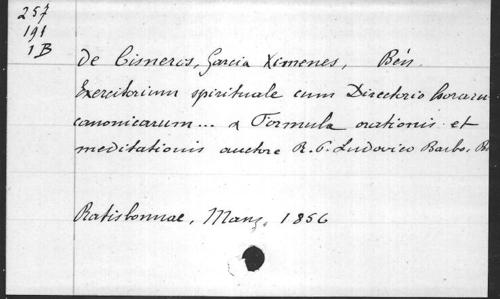 257
191
1B
de Cisneros, Garcia Ximenes, Bén.
Exercitorium spirituale cum Directorio horaru
canonicarum... & Formula orationis et
meditationis auctore R. P. Ludovico Barbo, B
Ratisbonnae, Manz, 1856